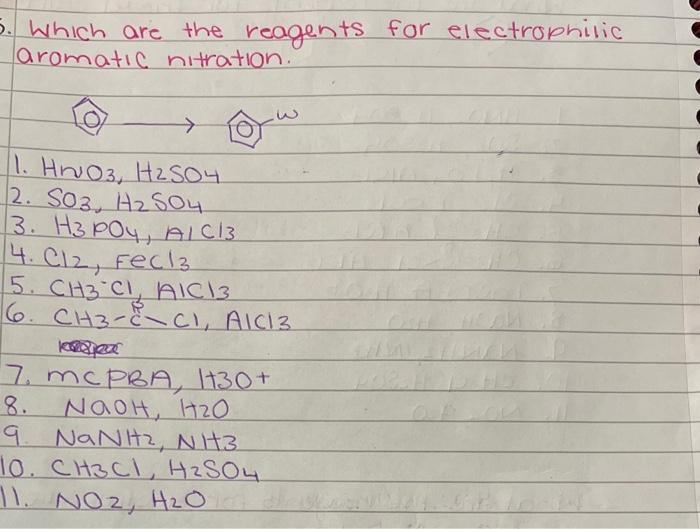 5. Which are the reagents for electrophilic
aromatic nitration.
w
1. HNO3, H2SO4
2. SO3, H2SO4
3. H3PO4, AlCl3
4. Cl2, FeCl3
5. CH3-Cl, AlCl3
O
6. CH3-C-Cl, AlCl3
7. mCPBA, H3O+
8. NaOH, H2O
9. NaNH2, NH3
10. CH3Cl, H2SO4
11. NO2, H2O